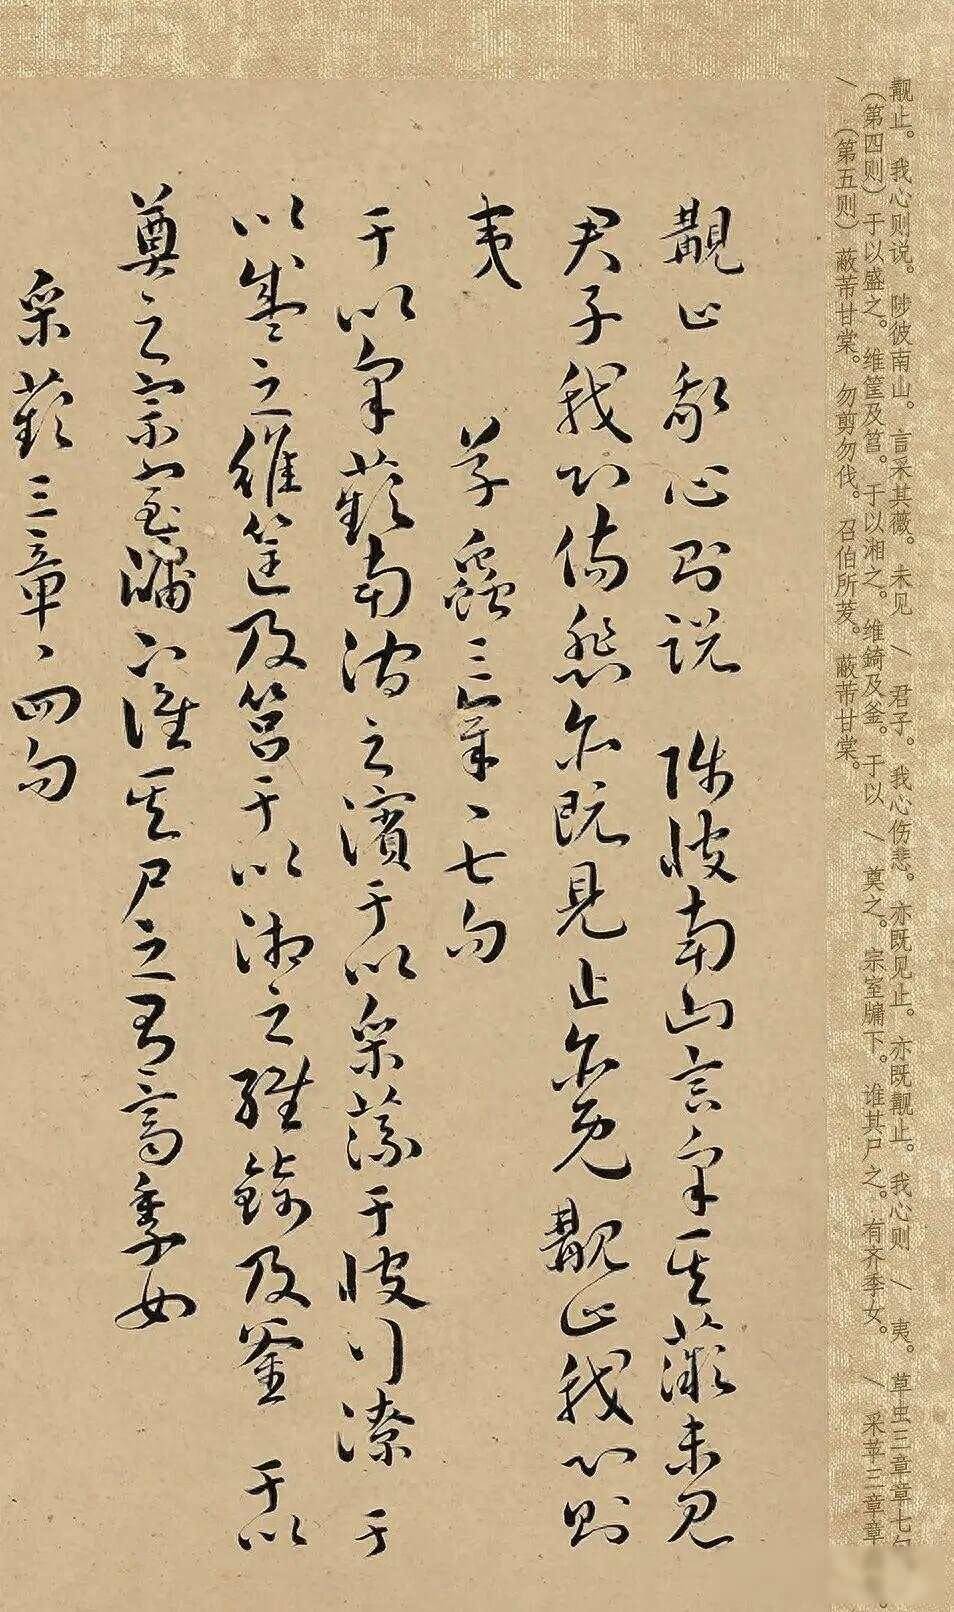 觏止。我心则说。陟彼南山。言采其薇。未见 / 君子。我心伤悲。亦既见止。亦既觏止。我心则 / 夷。草虫三章章七句
(第四则)于以盛之。维筐及筥。于以湘之。维錡及釜。于以 / 奠之。宗室牖下。谁其尸之。有齐季女。 / 采苹三章章
/ (第五则) 蔽芾甘棠。勿剪勿伐。召伯所茇。蔽芾甘棠。
覯止我心則説 陟彼南山言采其薇未見
君子我心傷悲亦既見止亦既覯止我心則
夷 草蟲三章〻七句
于以采蘋南澗之濱于以采藻于彼行潦 于
以盛之維筐及筥于以湘之維錡及釜 于以
奠之宗室牖下誰其尸之有齊季女
采蘋三章〻四句